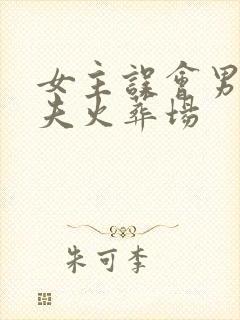 女主誤會男
夫火葬場
朱可李